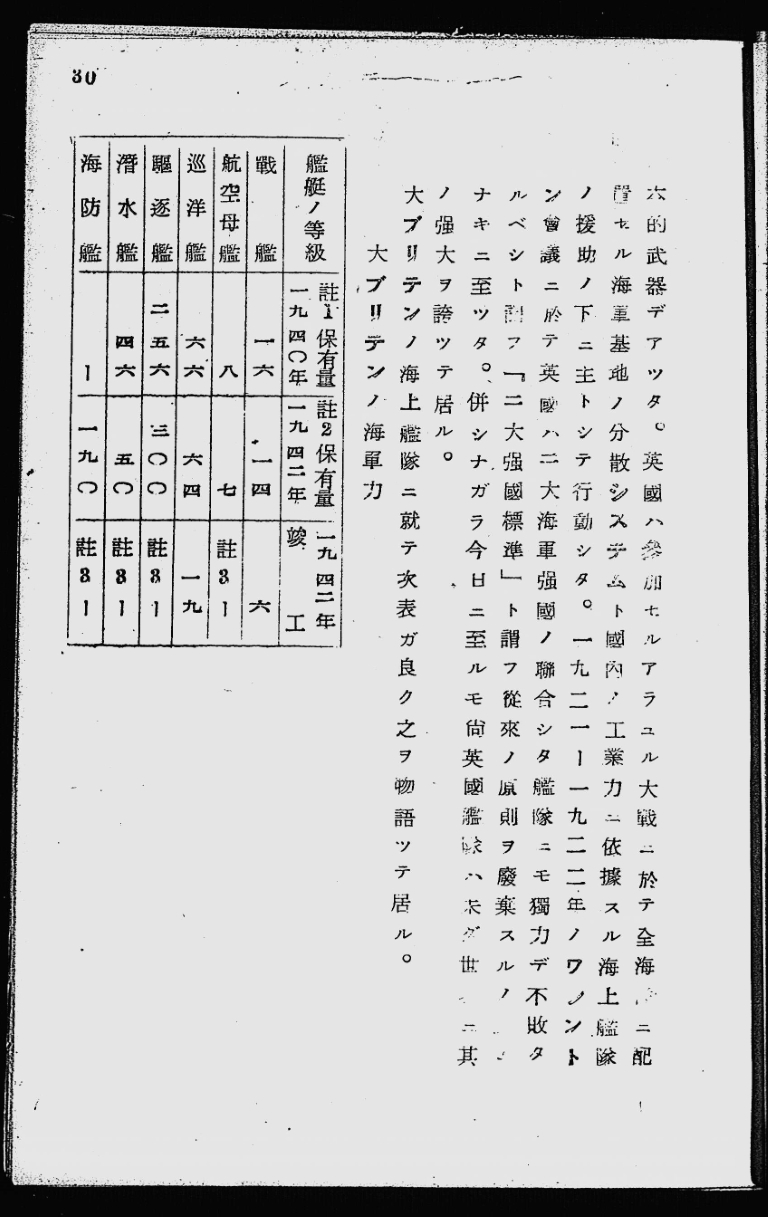 30
本的武器デアツタ。英國ハ參加セルアラユル大戰ニ於テ全海ニ配
置セル海軍基地ノ分散システムト國內ノ工業力ニ依據スル海上艦隊
ノ援助ノ下ニ主トシテ行動シタ。一九二一ー一九二二年ノワシント
ン會議ニ於テ英國ハ二大海軍强國ノ聯合シタ艦隊ニモ獨力デ不敗タ
ルベシト謂フ「二大强國標準」ト謂フ從來ノ原則ヲ廢棄スルノ
ナキニ至ツタ。併シナガラ今日ニ至ルモ尙英國艦隊ハ未ダ世ニ其
ノ强大ヲ誇ツテ居ル。
大ブリテンノ海上艦隊ニ就テ次表ガ良ク之ヲ物語ツテ居ル。
大ブリテンノ海軍力
艦艇ノ等級 註1保有量一九四〇年 註2保有量一九四二年 一九四二年竣工
戰艦 一六 一四 六
航空母艦 八 七 註3ー
巡洋艦 六六 六四 一九
驅逐艦 二五六 三〇〇 註3ー
潛水艦 四六 五〇 註3ー
海防艦 ー 一九〇 註3ー